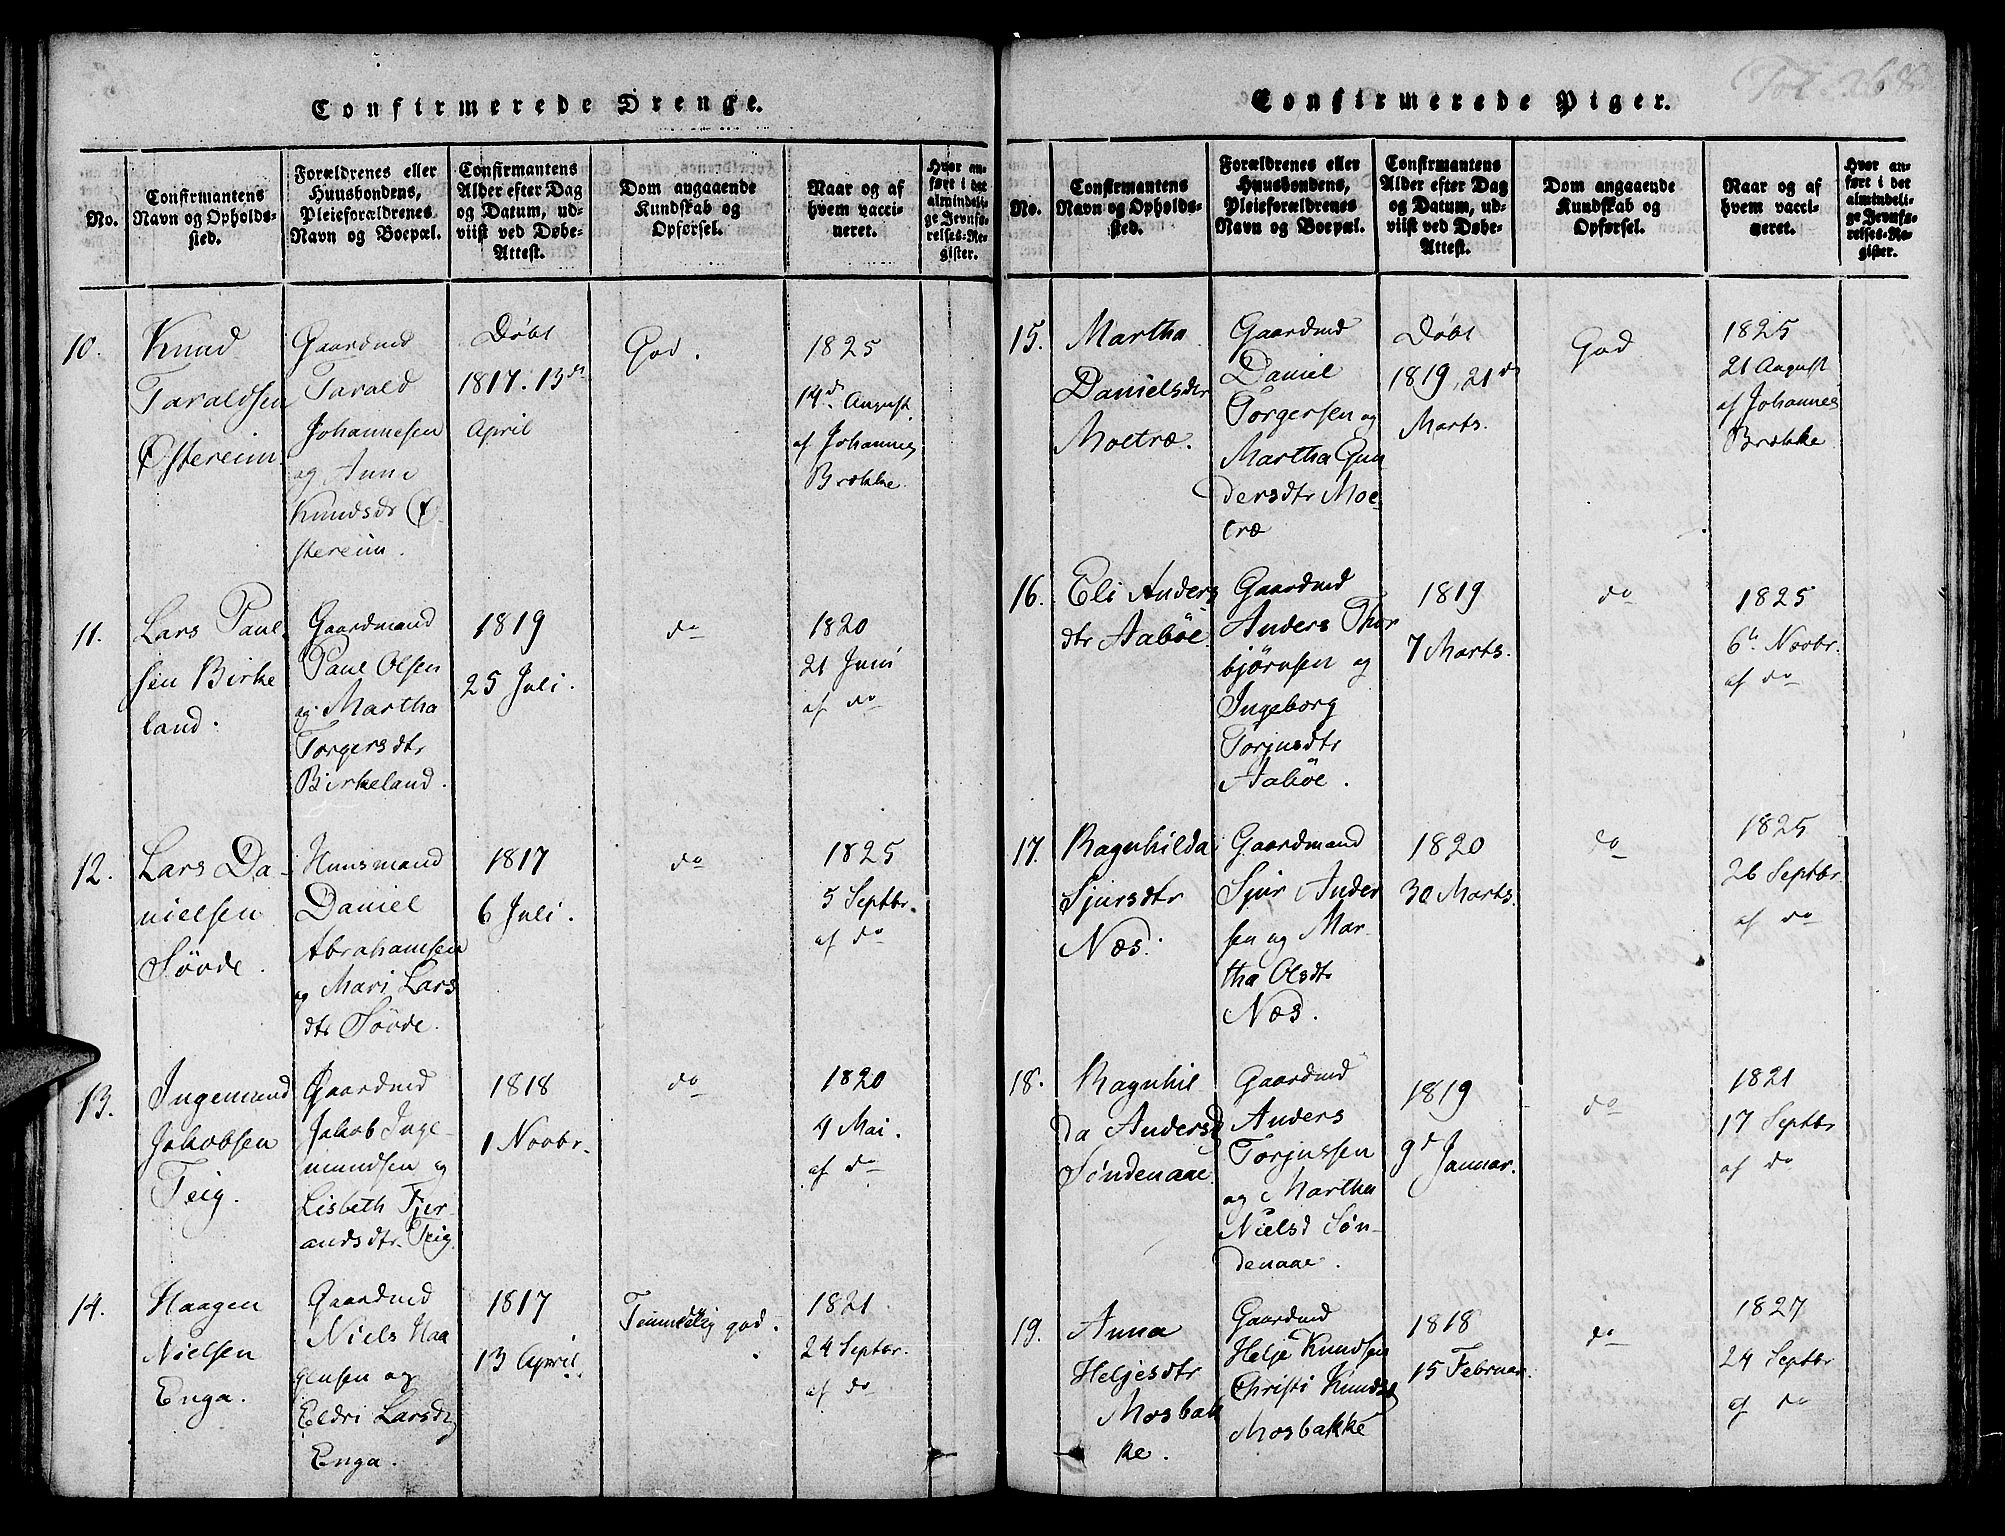 Confirmerede Drenge.
No.
Confirmantens
Navn og Opholds-
sted.
Forældrenes eller
Huusbondens,
Pleieforældrenes
Navn og Boepæl.
Confirmantens
Alder efter Dag
og Datum, ud-
viist ved Døbe-
Attest.
Dom angaaende
Kundskab og
Opførsel.
Naar og af
hvem vacci-
neret.
Hvor an-
ført i det
almindeli-
ge Jevnfø-
relses-Re-
gister.
10.
Knud
Taraldsen
Østereim
Gaardmd
Tarald
Johannesen
og Anne
Knudsdr Ø-
stereim.
Døbt
1817. 13de
April
God.
1825
14d. August
af Johannes
Brække.
11.
Lars Paul-
sen Birke
land.
Gaardmand
Paul Olsen
og Martha
Torgersdtr
Birkeland.
1819
25 Juli.
do
1820
21 Juni
af do
12.
Lars Da-
nielsen
Søvde.
Huusmand
Daniel
Abrahamsen
og Mari Lars
dtr Søvde.
1817
6 Juli.
do
1825
5 Septbr.
af do
13.
Ingemund
Jakobsen
Teig.
Gaardmd
Jakob Inge-
mundsen og
Lisbeth Fjer-
andsdtr. Teig.
1818
1 Novbr.
do
1820
4 Mai.
af do
14.
Haagen
Nielsen
Enga.
Gaardmd
Niels Haa
gensen og
Eldri Larsdr
Enga.
1817
13 April.
Temmelig god.
1821
24 Septbr.
af do
Confirmerede Piger.
Fol. 268
No.
Confirmantens
Navn og Opholds-
sted.
Forældrenes eller
Huusbondens,
Pleieforældrenes
Navn og Boepæl.
Confirmantens
Alder efter Dag
og Datum, ud-
viist ved Døbe-
Attest.
Dom angaaende
Kundskab og
Opførsel.
Naar og af
hvem vacci-
neret.
Hvor an-
ført i det
almindeli-
ge Jevnfø-
relses-Re-
gister.
15.
Martha
Danielsdtr
Moetræ.
Gaardmd
Daniel
Torgersen og
Martha Gun
dersdtr Moe-
træ
Døbt
1819, 21d
Marts.
God
1825
21 August
af Johannes
Brække
16.
Eli Anders
dtr Aabøe.
Gaardmd
Anders Thor
bjørnsen og
Ingeborg
Torjusdtr
Aabøe.
1819
7 Marts.
do
1825
6te Novbr.
af do
17.
Ragnhilda
Sjursdtr
Næs.
Gaardmand
Sjur Ander
sen og Mar-
tha Olsdtr
Næs.
1820
30 Marts.
do
1825
26 Septbr
af do
18.
Ragnhil
da Andersd
Søndenaae
Gaardmd
Anders
Torjussen
og Martha
Nielsd Søn-
denaae.
1819
9d Januar.
do
1821
17 Septbr
af do
19.
Anna
Heljesdtr
Mosbak
ke.
Gaardmd
Helje Knudsen
Christi Knudsd
Mosbakke
1818
15 Februar.
do
1827
24 Septbr
af do